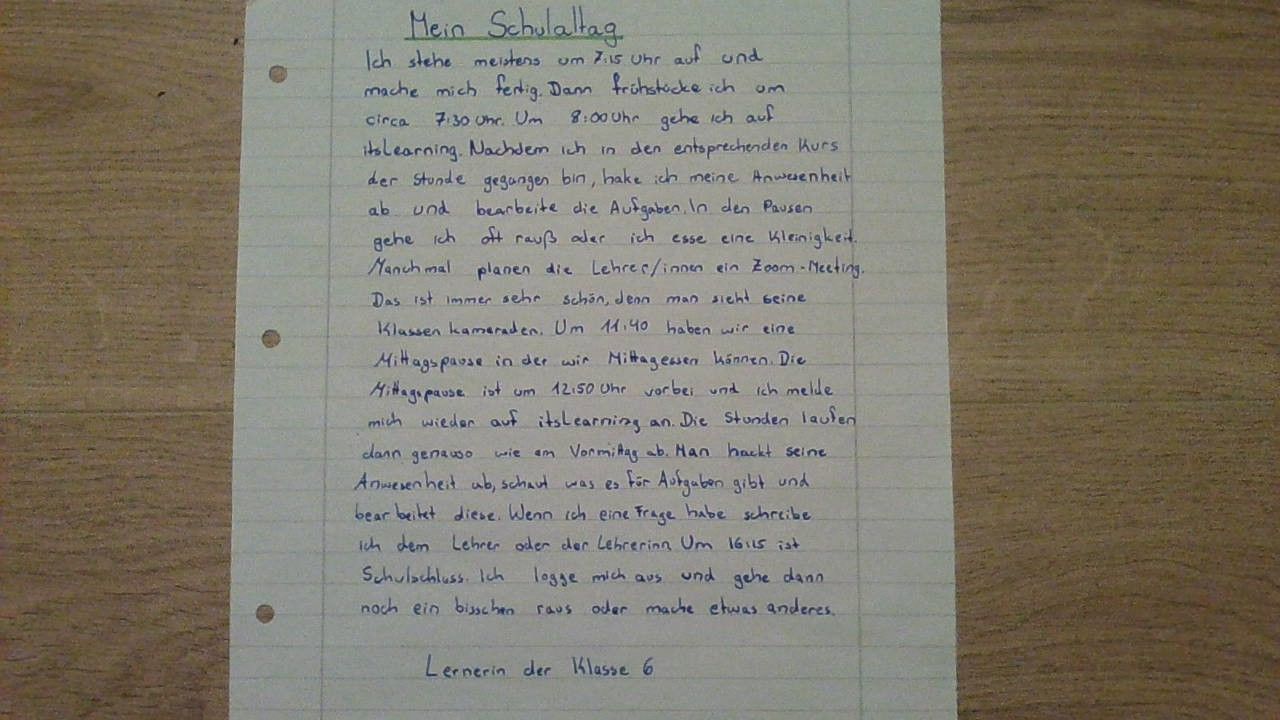 Mein Schulaltag
Ich stehe meistens um 7:15 Uhr auf und
mache mich fertig. Dann frühstücke ich um
circa 7:30 Uhr. Um 8:00 Uhr gehe ich auf
itsLearning. Nachdem ich in den entsprechenden Kurs
der Stunde gegangen bin, hake ich meine Anwesenheit
ab und bearbeite die Aufgaben. In den Pausen
gehe ich oft rauß oder ich esse eine Kleinigkeit.
Manchmal planen die Lehrer/innen ein Zoom-Meeting.
Das ist immer sehr schön, denn man sieht seine
Klassenkameraden. Um 11:40 haben wir eine
Mittagspause in der wir Mittagessen können. Die
Mittagspause ist um 12:50 Uhr vorbei und ich melde
mich wieder auf itsLearning an. Die Stunden laufen
dann genauso wie am Vormittag ab. Man hackt seine
Anwesenheit ab, schaut was es für Aufgaben gibt und
bearbeitet diese. Wenn ich eine Frage habe schreibe
ich dem Lehrer oder der Lehrerinn. Um 16:15 ist
Schulschluss. Ich logge mich aus und gehe dann
noch ein bisschen raus oder mache etwas anderes.
Lernerin der Klasse 6